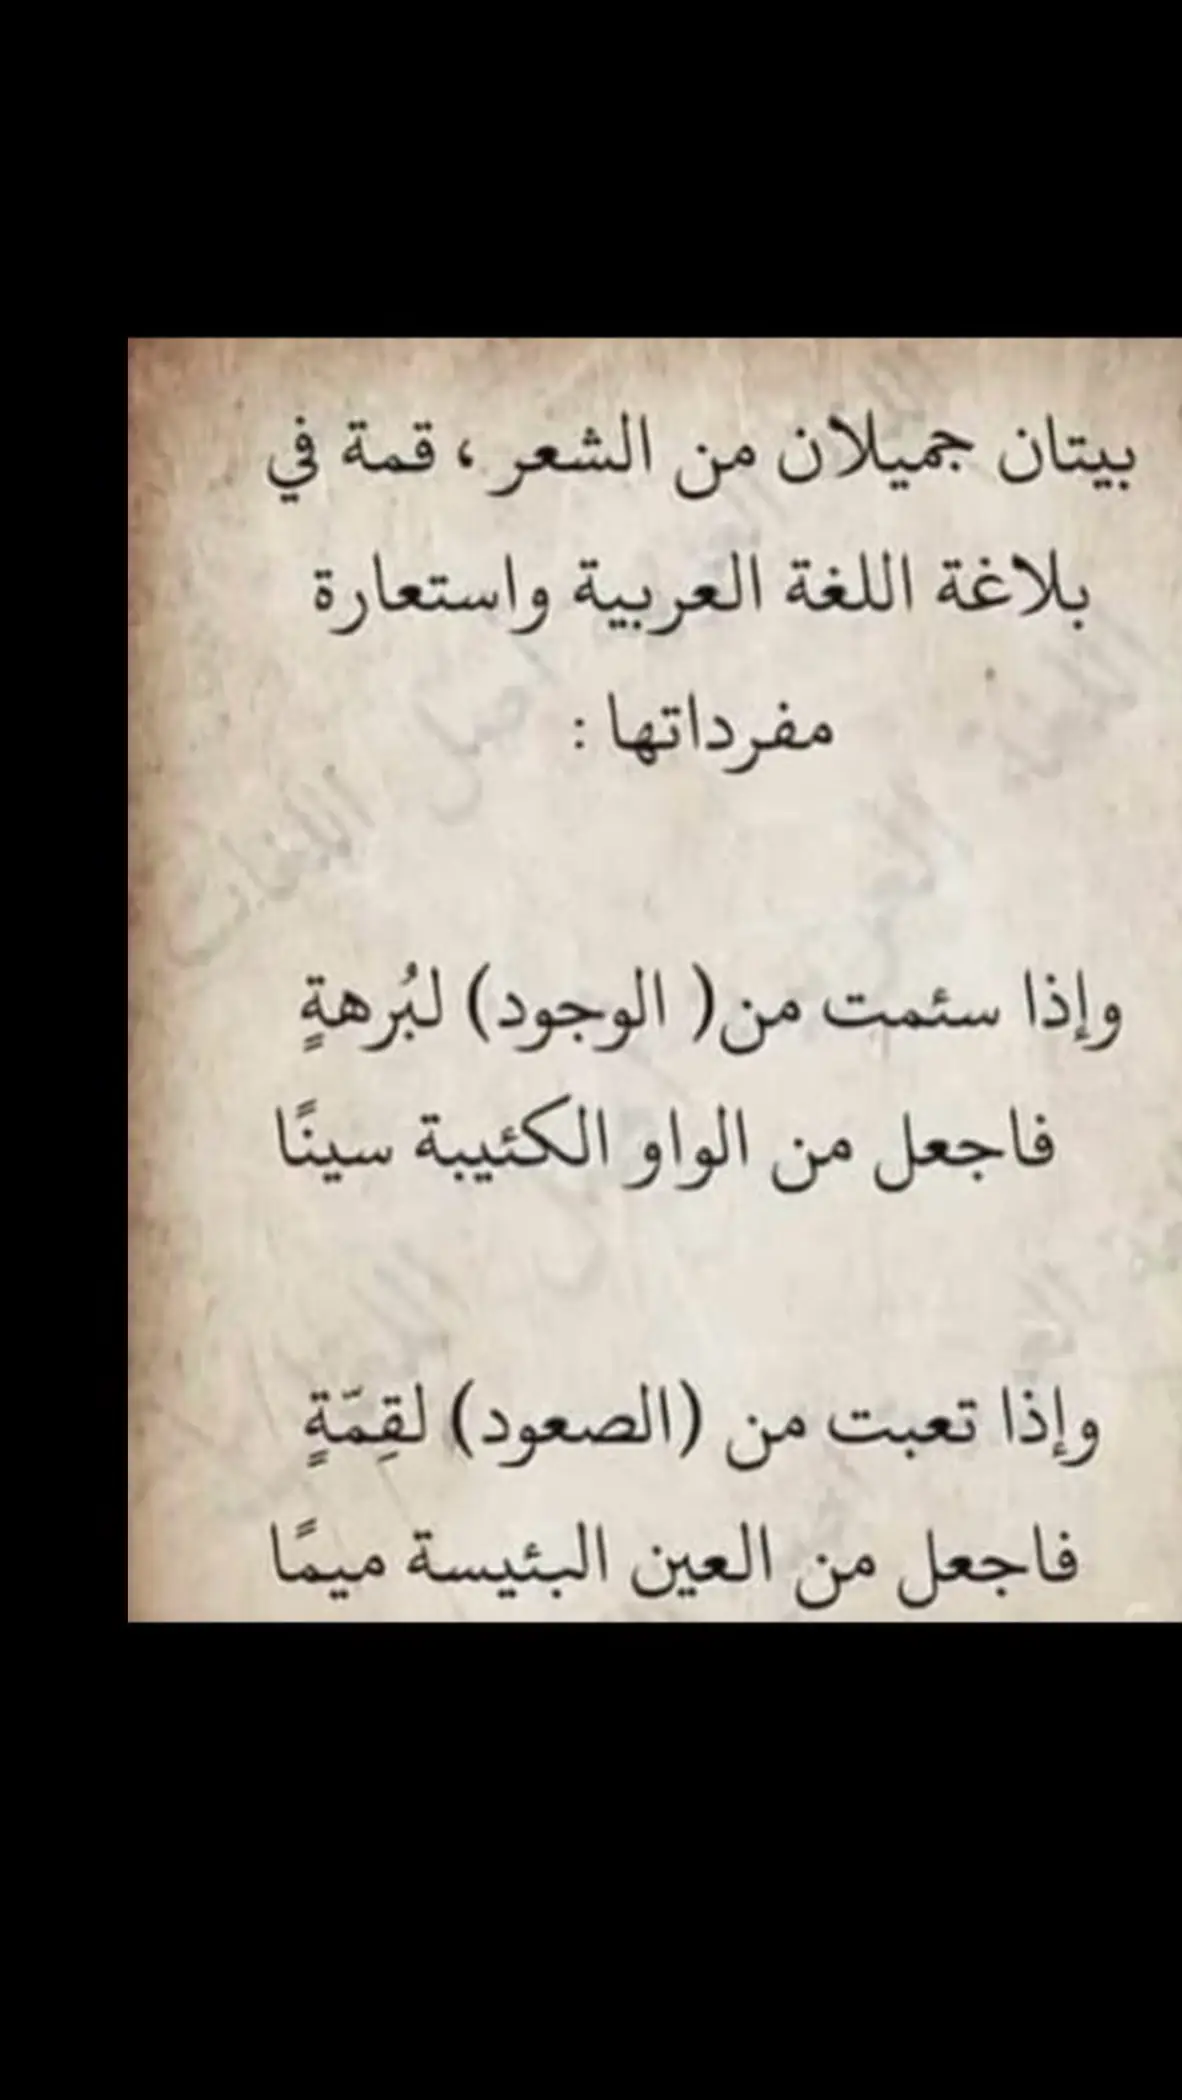 بيتان جميلان من الشعر، قمة في
بلاغة اللغة العربية واستعارة
مفرداتها :
وإذا سئمت من( الوجود) لبُرهةٍ
فاجعل من الواو الكئيبة سينًا
وإذا تعبت من (الصعود) لقِمّةٍ
فاجعل من العين البئيسة ميمًا